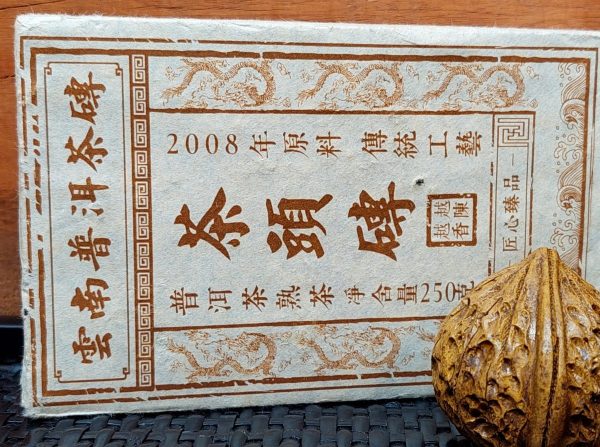 雲南普洱茶磚
2008年原料 傳統工藝
茶頭磚
越陳
越香
普洱茶熟茶淨含量250克
匠心臻品